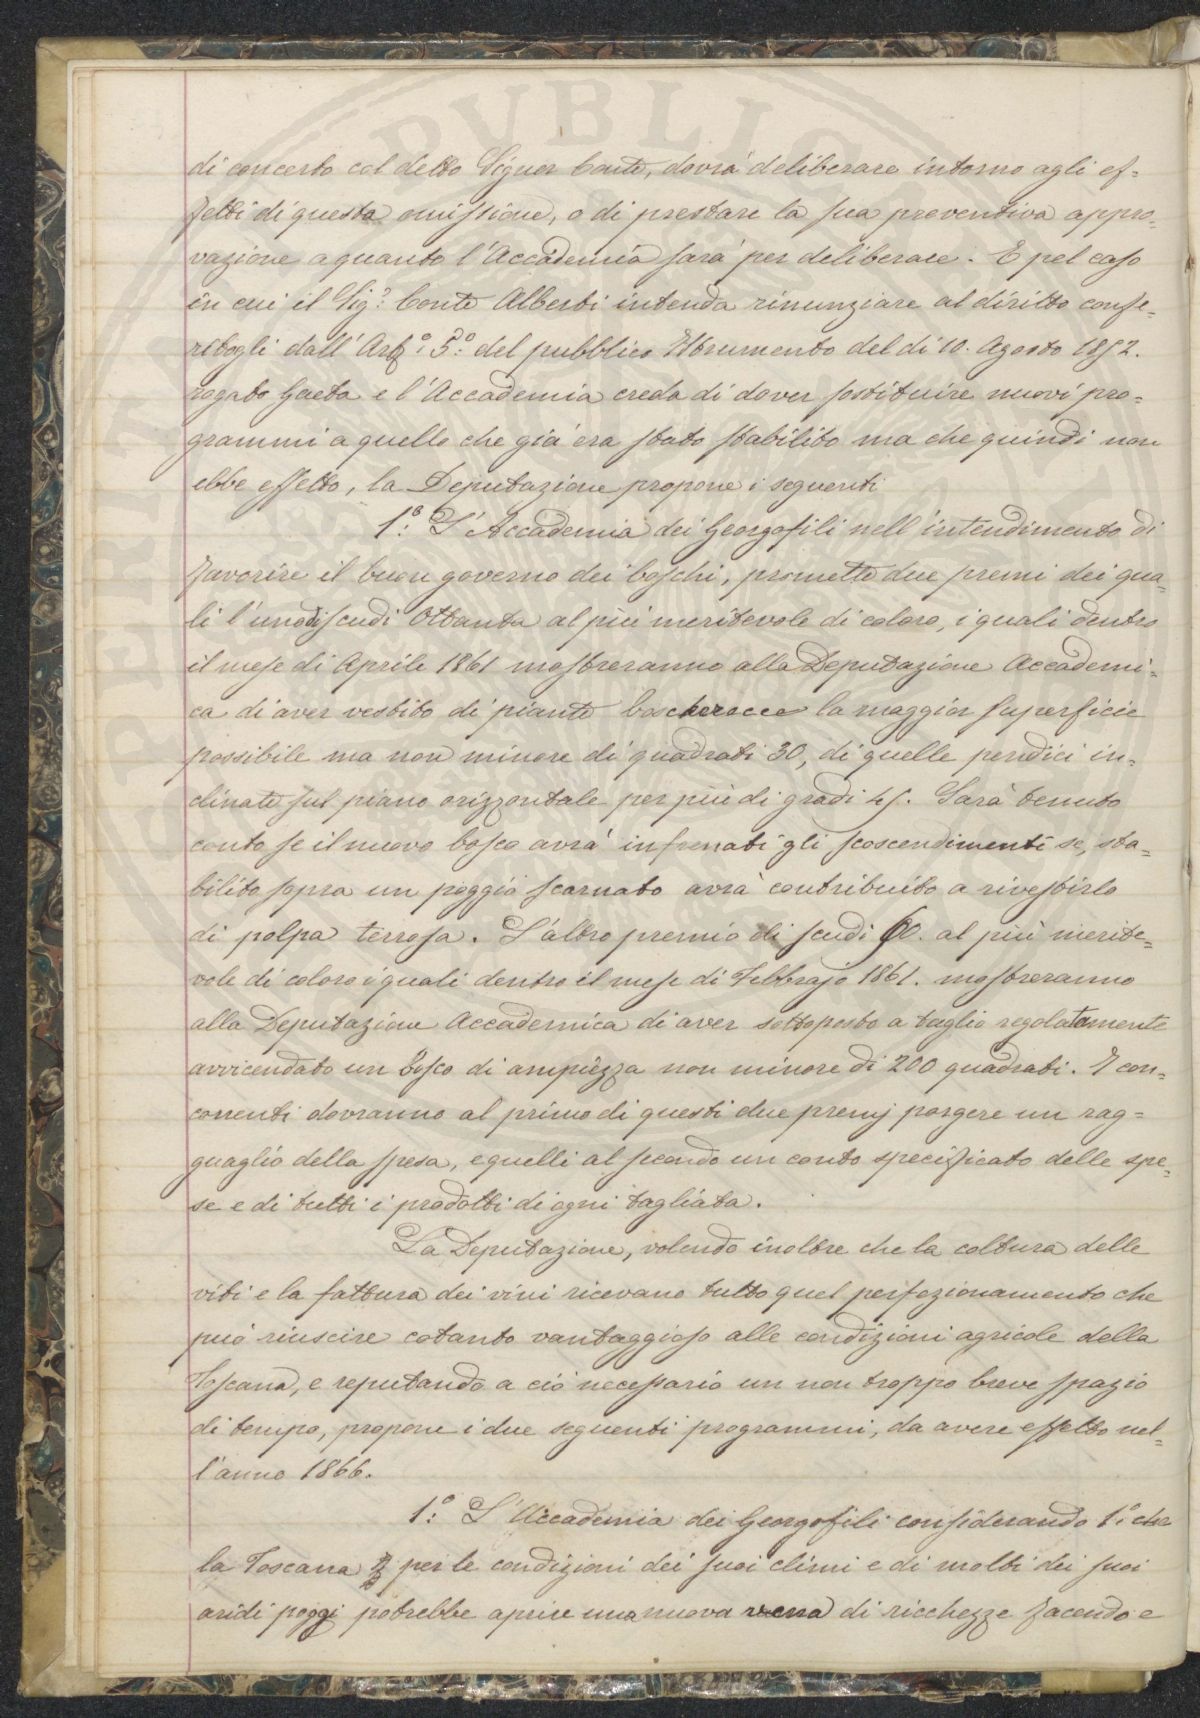 di concerto col detto Signor Conte, dovrà deliberare intorno agli ef=
fetti di questa omissione, o di prestare la sua preventiva appro=
vazione a quanto l'Accademia sarà per deliberare. E pel caso
in cui il Sig.r Conte Alberti intenda rinunziare al diritto confe=
ritogli dall'Art.o 5.o del pubblico Istrumento del dì 10. Agosto 1852.
rogato Gaeta e l'Accademia creda di dover sostituire nuovi pro=
grammi a quello che già era stato stabilito ma che quindi non
ebbe effetto, la Deputazione propone i seguenti
1.o L'Accademia dei Georgofili nell'intendimento di
favorire il buon governo dei boschi, promette due premi dei qua=
li l'uno di scudi Ottanta al più meritevole di coloro, i quali dentro
il mese di Aprile 1861 mostreranno alla Deputazione Accademi=
ca di aver vestito di piante boscherecce la maggior superficie
possibile ma non minore di quadrati 30, di quelle pendici in=
clinate sul piano orizzontale per più di gradi 45. Sarà tenuto
conto se il nuovo bosco avrà infrenati gli scoscendimenti se, sta=
bilito sopra un poggio scarnato avrà contribuito a rivestirlo
di polpa terrosa. L'altro premio di scudi 60. al più merite=
vole di coloro i quali dentro il mese di Febbrajo 1861. mostreranno
alla Deputazione Accademica di aver sottoposto a taglio regolatamente
avvicendato un bosco di ampiezza non minore di 200 quadrati. I con=
correnti dovranno al primo di questi due premj porgere un rag=
guaglio della spesa, e quelli al secondo un conto specificato delle spe=
se e di tutti i prodotti di ogni tagliata.
La Deputazione, volendo inoltre che la coltura delle
viti e la fattura dei vini ricevano tutto quel perfezionamento che
può riuscire cotanto vantaggioso alle condizioni agricole della
Toscana, e reputando a ciò necessario un non troppo breve spazio
di tempo, propone i due seguenti programmi, da avere effetto nel=
l'anno 1866.
1.o L'Accademia dei Georgofili considerando 1.o che
la Toscana per le condizioni dei suoi climi e di molti dei suoi
aridi poggi potrebbe aprire una nuova vena di ricchezze facendo e